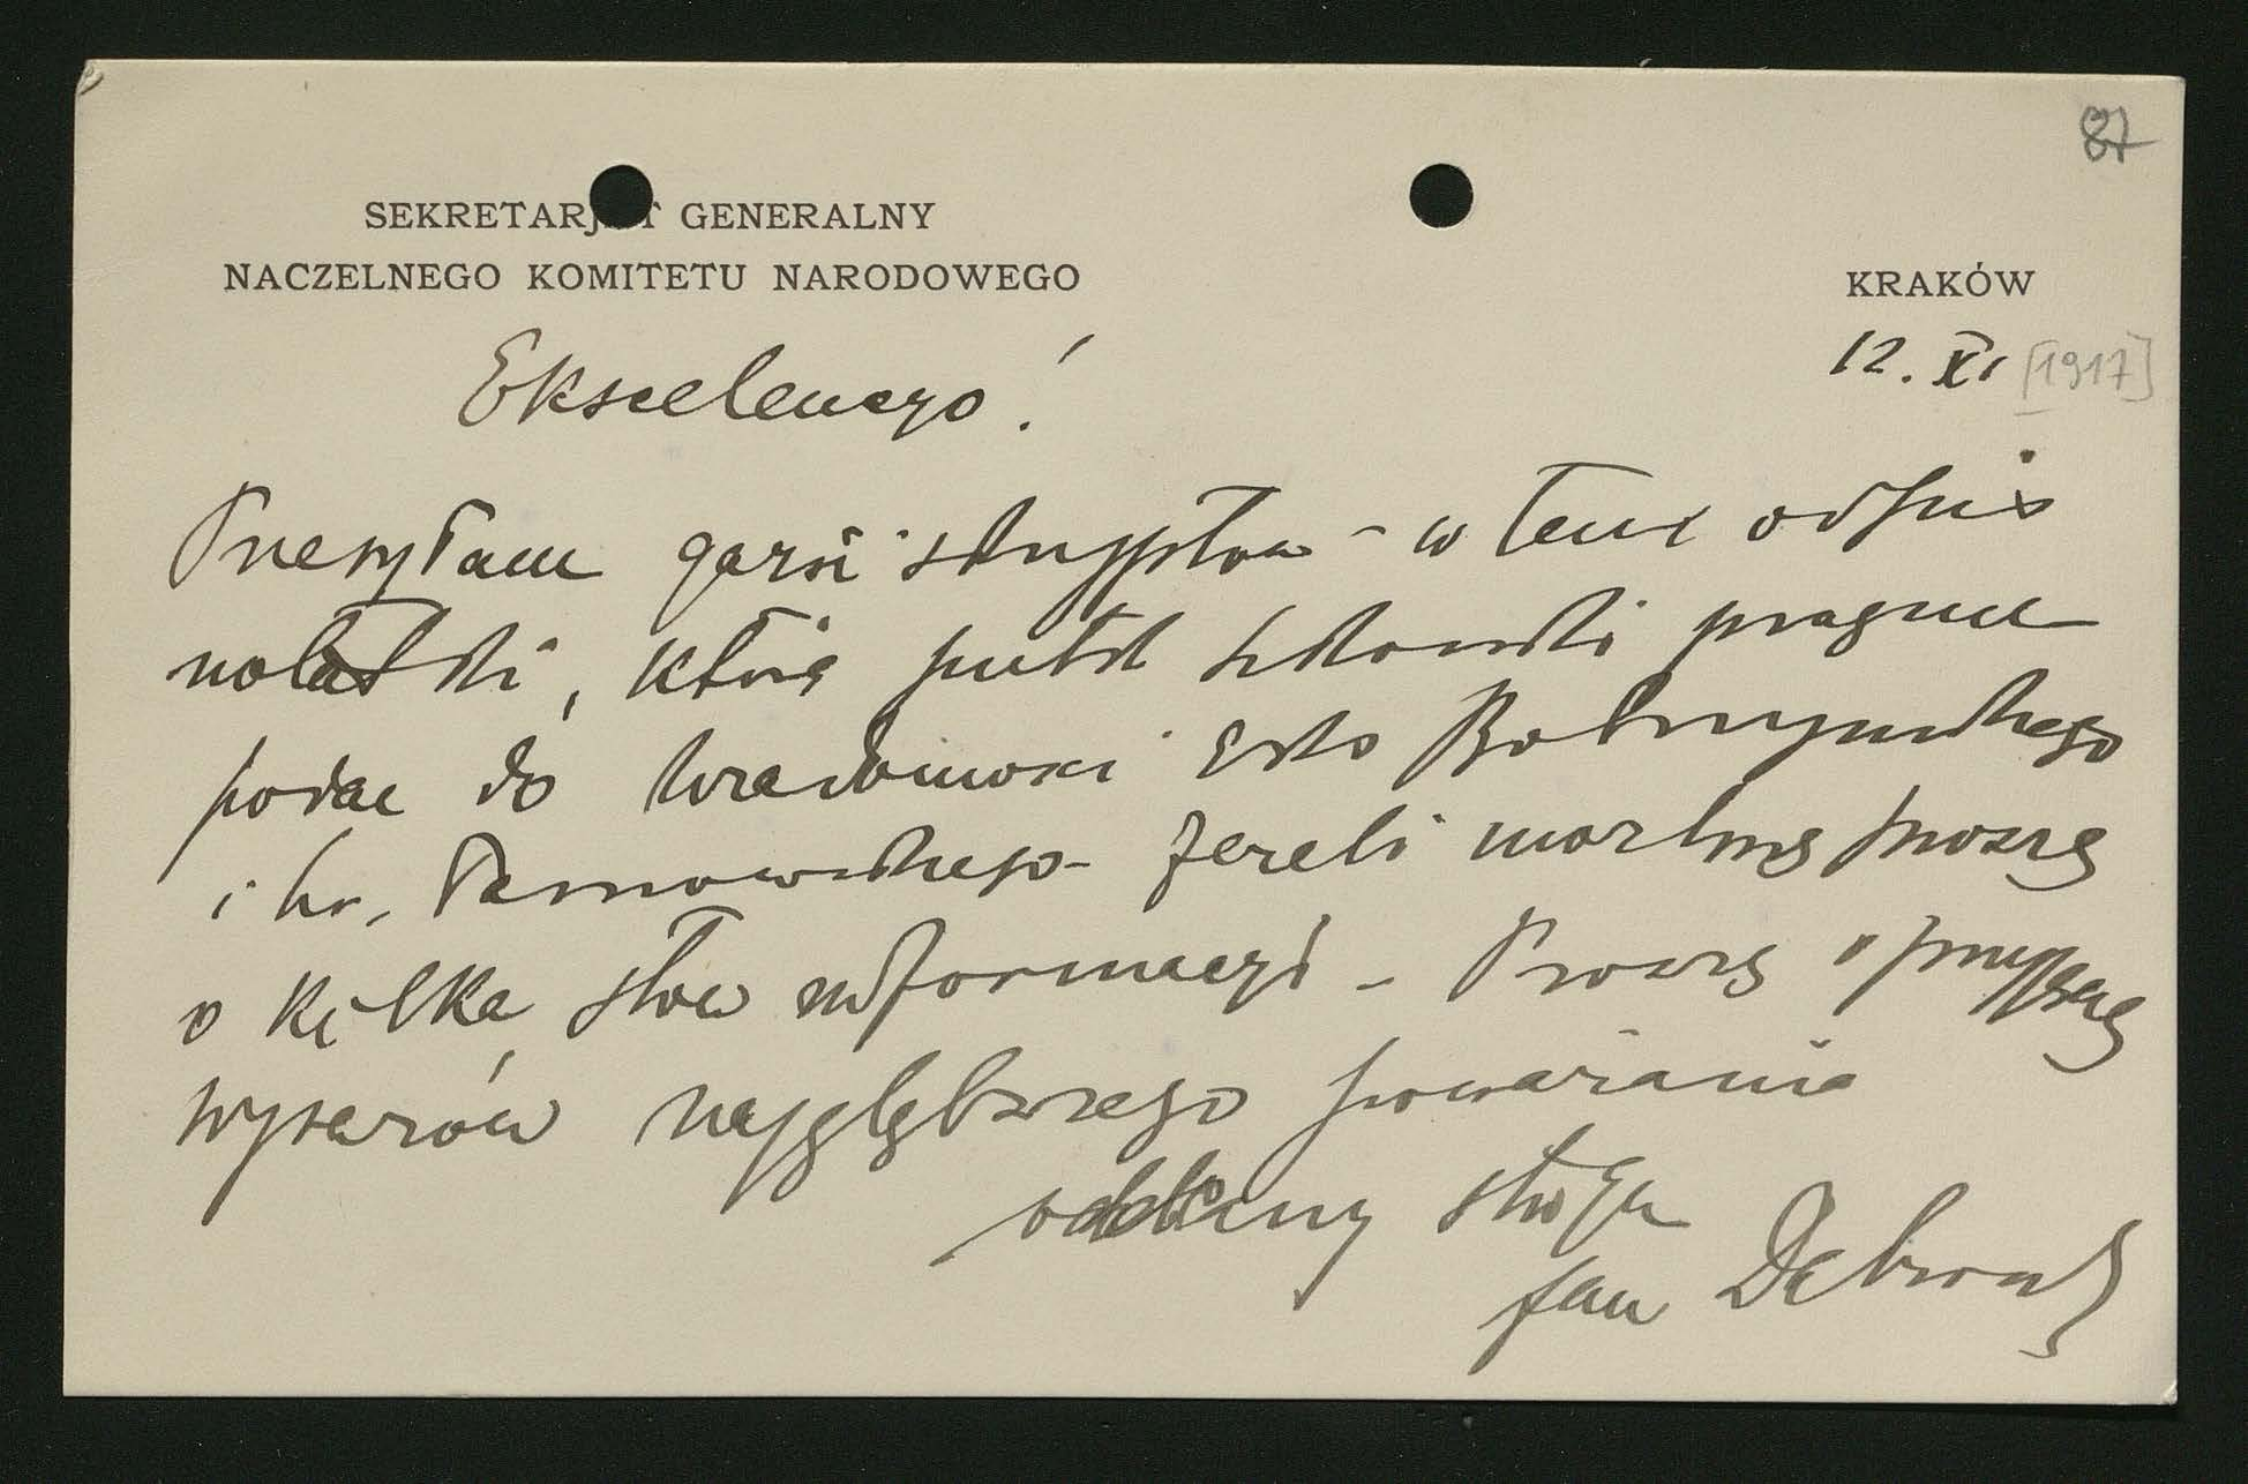 87
SEKRETARJAT GENERALNY
NACZELNEGO KOMITETU NARODOWEGO
KRAKÓW
12. XI [1917]
Ekscelencyo!
Przesyłam garść skryptów - w tem odpis
notatki, którą pułk Sikorski pragnie
podać do wiadomości Eksc Bobrzyńskiego
i hr. Tarnowskiego - Jeżeli można proszę
o kilka słów informacyi - Proszę o przyjęcie
wyrazów najgłębszego poważania
oddany sługa
Jan Dąbrowski